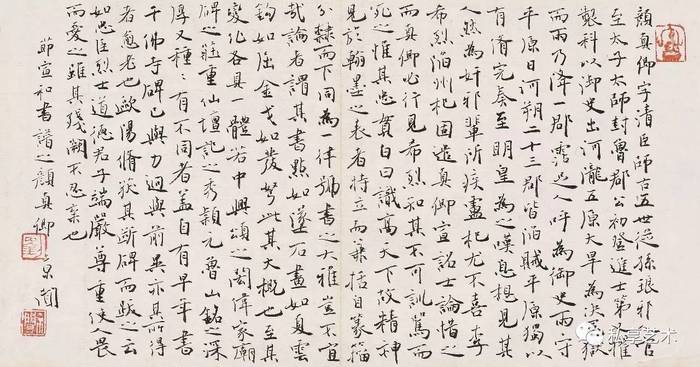 顏真卿字清臣師古五世從孫琅邪人官
至太子太師封魯郡公初登進士第又擢
製科以御史出河隴五原大旱為決冤獄
而雨乃降一郡霑足人呼為御史雨守
平原日河朔二十三郡皆陷賊平原獨以
有備完奏至明皇為之嘆息想見其
人然為奸邪輩所疾盧杞尤不喜李
希烈陷州杞因遣真卿宣詔士論惜之
而真卿必行見希烈知其不可訓罵而
死之惟其忠貫白日識高天下故精神
見於翰墨之表者特立而兼括自篆籀
分隸而下同為一律號書之大雅豈不宜
哉論者謂其書點如墜石畫如夏雲
鈎如屈金戈如發弩此其大概也至其
變化各具一體若中興頌之閎偉家廟
碑之莊重仙壇記之秀穎元魯山銘之深
厚又種種有不同者蓋自有早年書
千佛寺碑已與力迥與前異亦其所得
者愈老也歐陽脩獲其斷碑而跋之云
如忠臣烈士道德君子端嚴尊重使人畏
而愛之雖其殘闕不忍棄也
節宣和書譜之顏真卿